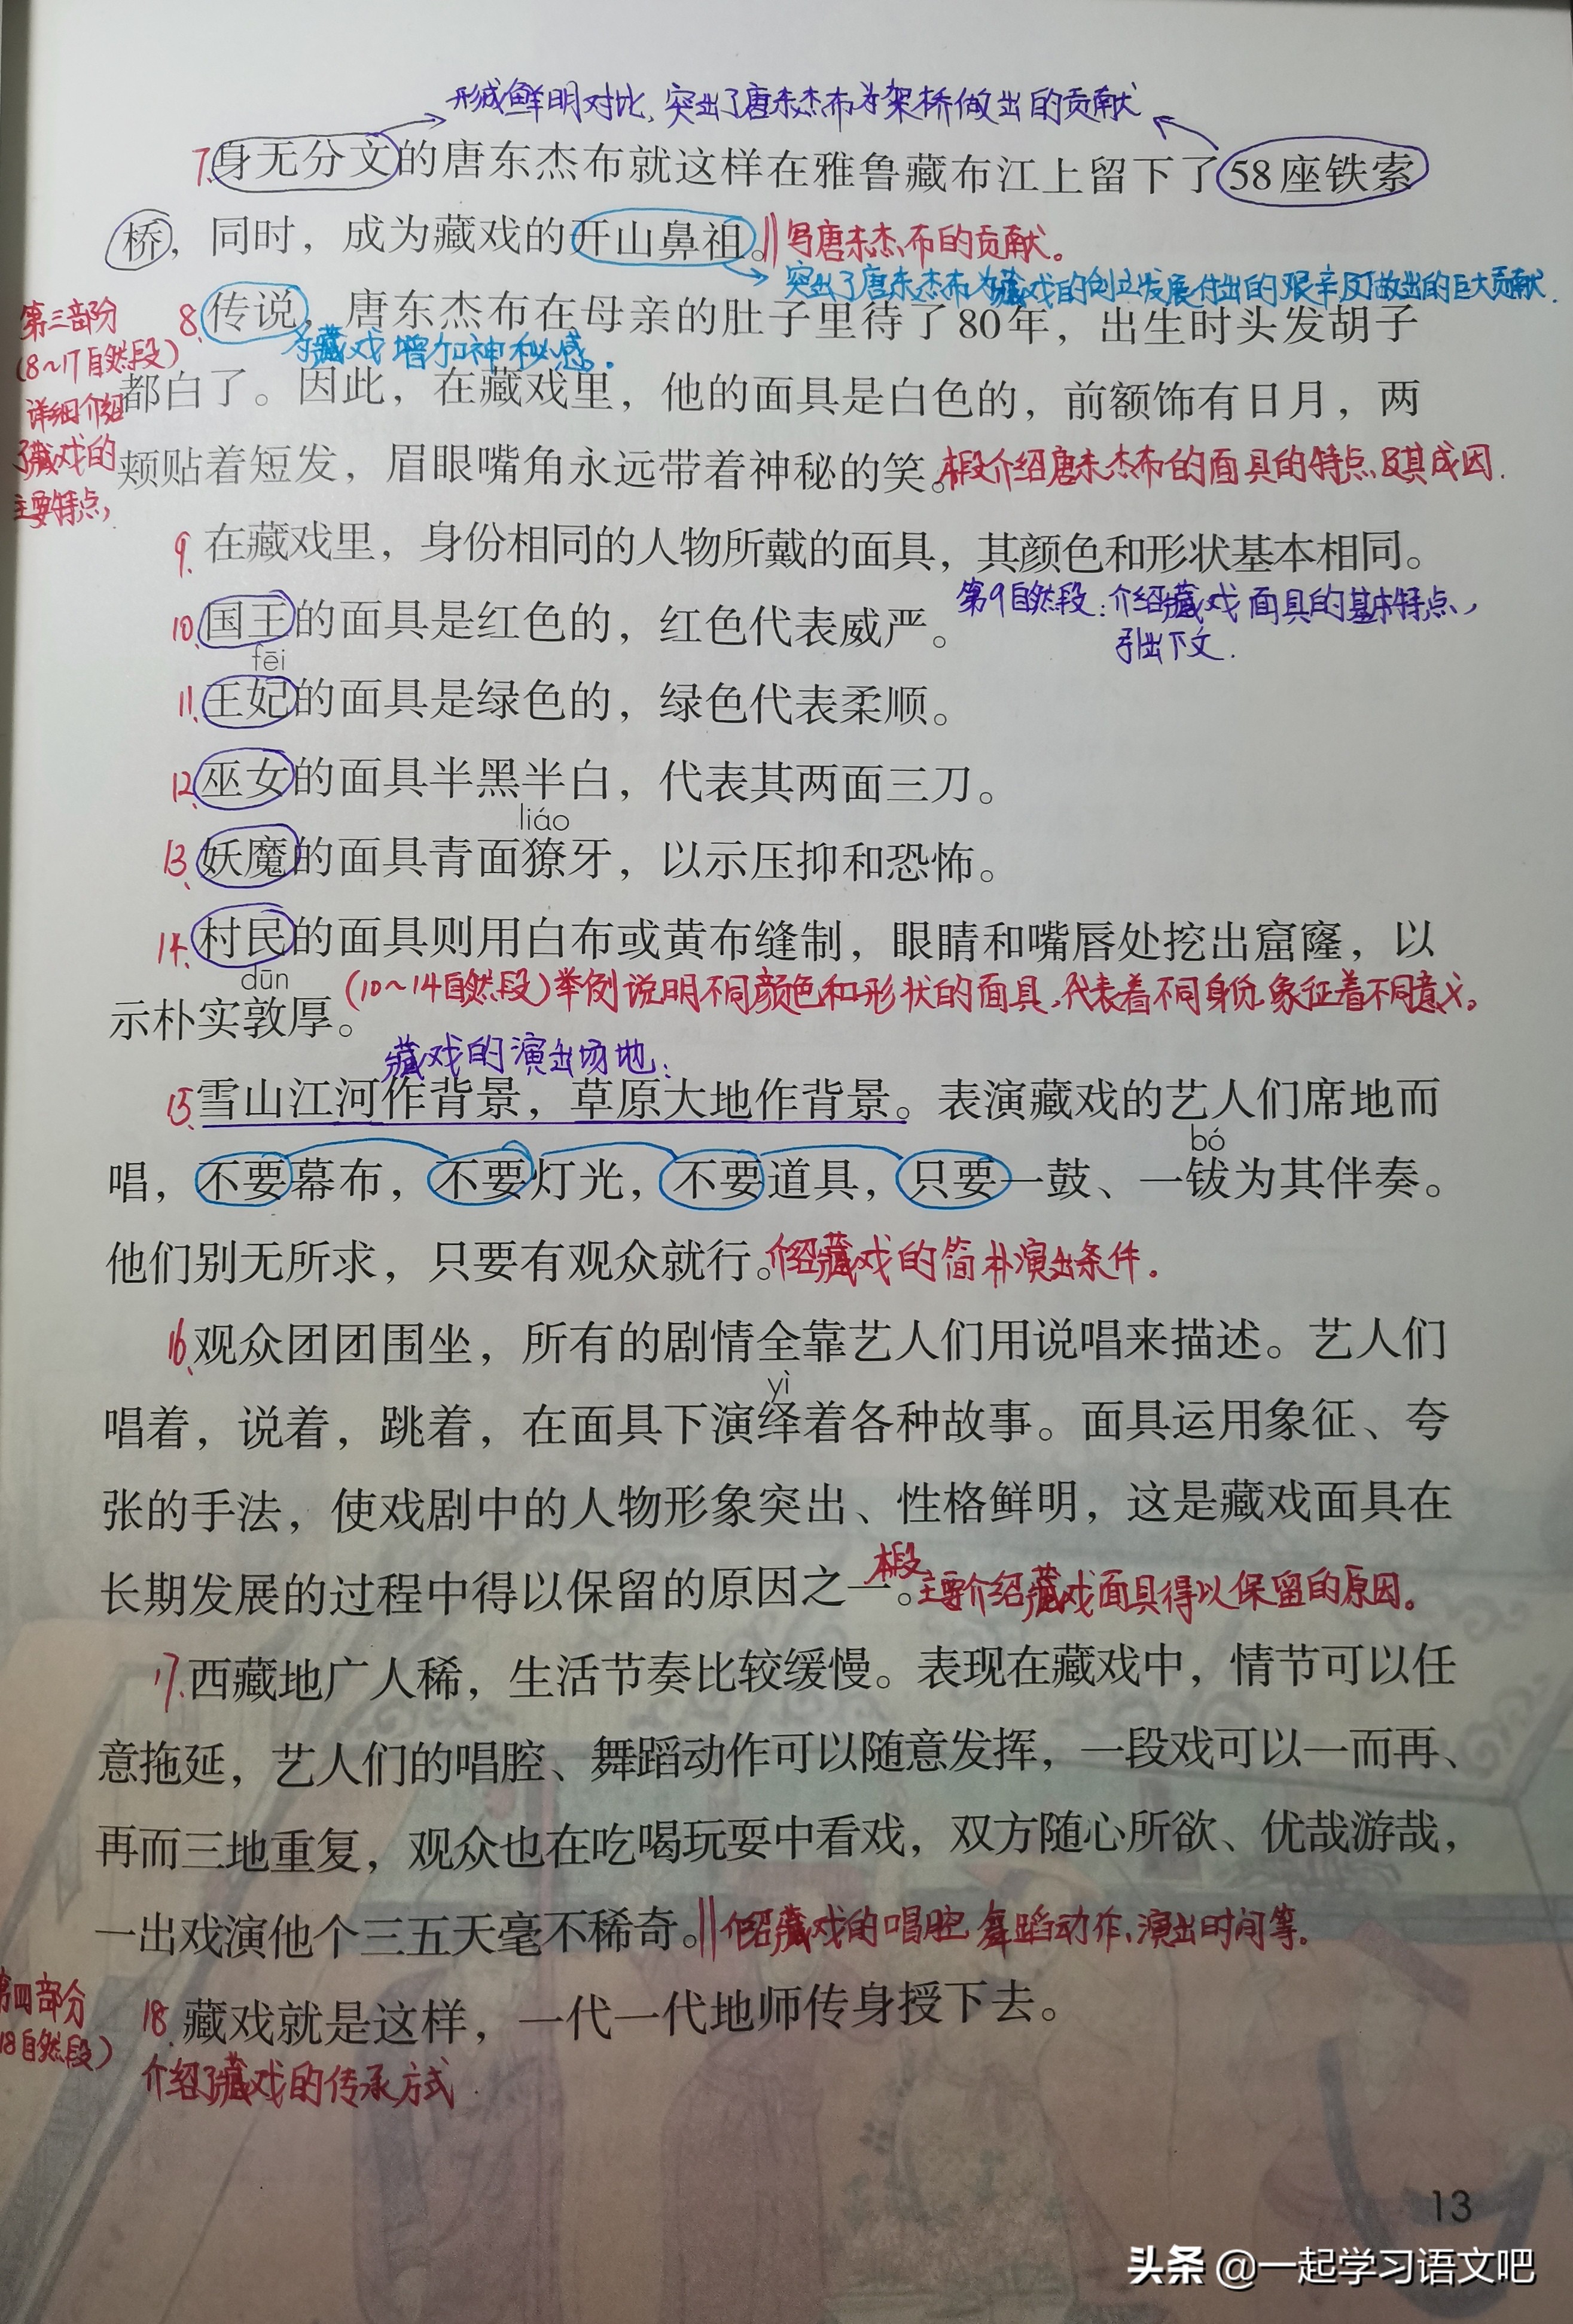 形成鲜明对比,突出了唐东杰布为架桥做出的贡献
7.身无分文的唐东杰布就这样在雅鲁藏布江上留下了58座铁索
桥，同时，成为藏戏的开山鼻祖。‖写唐东杰布的贡献。
突出了唐东杰布为藏戏的创立发展付出的艰辛及做出的巨大贡献.
第三部分
(8~17自然段)
详细介绍
了藏戏的
主要特点,
8.传说，唐东杰布在母亲的肚子里待了80年，出生时头发胡子
为藏戏增加神秘感。
都白了。因此，在藏戏里，他的面具是白色的，前额饰有日月，两
颊贴着短发，眉眼嘴角永远带着神秘的笑。本段介绍唐东杰布的面具的特点及其成因.
9.在藏戏里，身份相同的人物所戴的面具，其颜色和形状基本相同。
第9自然段:介绍藏戏面具的基本特点,
引出下文.
10.国王的面具是红色的，红色代表威严。
fēi
11.王妃的面具是绿色的，绿色代表柔顺。
12.巫女的面具半黑半白，代表其两面三刀。
liáo
13.妖魔的面具青面獠牙，以示压抑和恐怖。
14.村民的面具则用白布或黄布缝制，眼睛和嘴唇处挖出窟窿，以
dūn
(10~14自然段)举例说明不同颜色和形状的面具,代表着不同身份,象征着不同意义。
示朴实敦厚。
藏戏的演出场地:
15.雪山江河作背景，草原大地作背景。表演藏戏的艺人们席地而
bó
唱，不要幕布，不要灯光，不要道具，只要一鼓、一钹为其伴奏。
他们别无所求，只要有观众就行。介绍藏戏的简朴演出条件.
16.观众团团围坐，所有的剧情全靠艺人们用说唱来描述。艺人们
yì
唱着，说着，跳着，在面具下演绎着各种故事。面具运用象征、夸
张的手法，使戏剧中的人物形象突出、性格鲜明，这是藏戏面具在
长期发展的过程中得以保留的原因之一。本段主要介绍藏戏面具得以保留的原因。
17.西藏地广人稀，生活节奏比较缓慢。表现在藏戏中，情节可以任
意拖延，艺人们的唱腔、舞蹈动作可以随意发挥，一段戏可以一而再、
再而三地重复，观众也在吃喝玩耍中看戏，双方随心所欲、优哉游哉，
一出戏演他个三五天毫不稀奇。‖介绍藏戏的唱腔、舞蹈动作、演出时间等。
第四部分
18自然段)
18.藏戏就是这样，一代一代地师传身授下去。
介绍了藏戏的传承方式.
13
头条 @一起学习语文吧